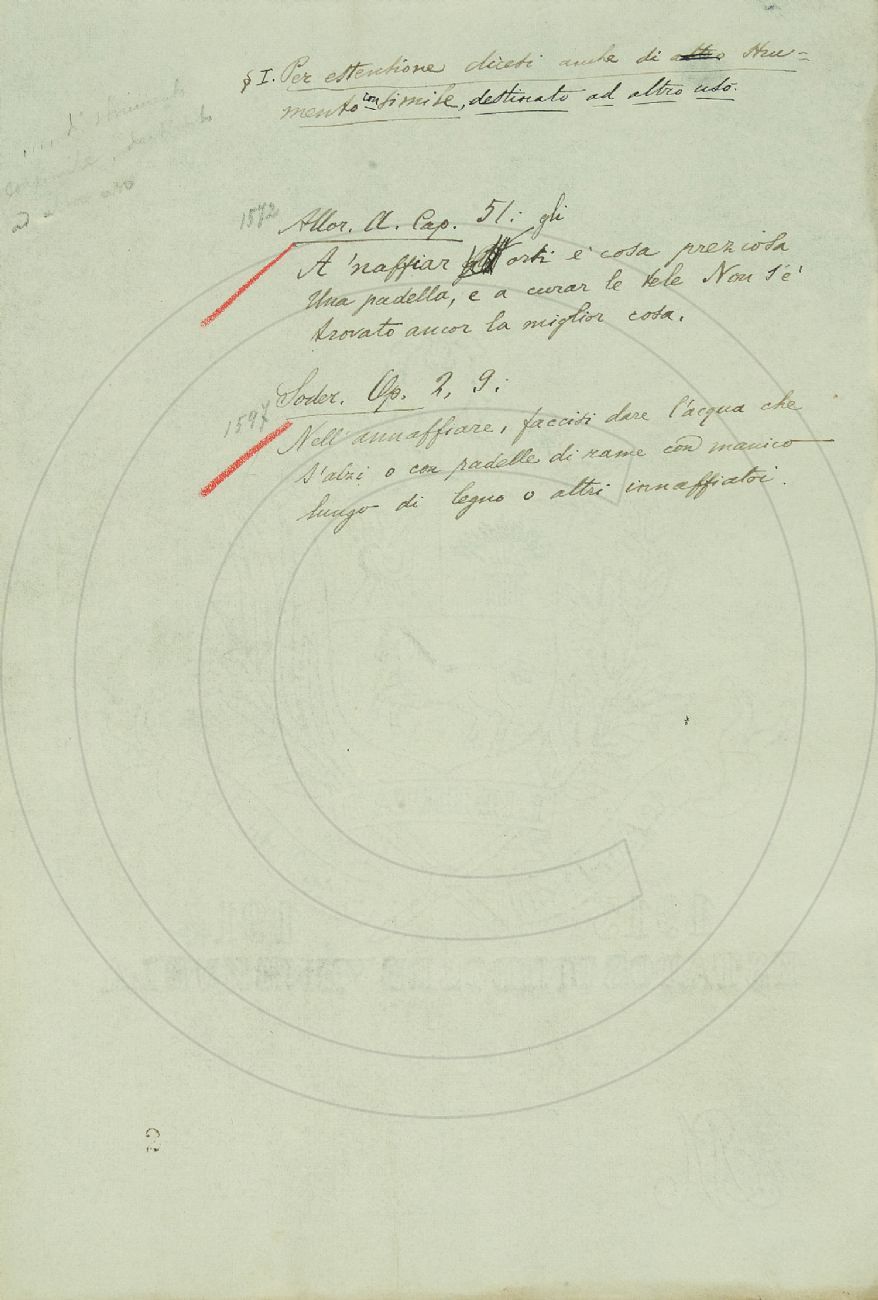 § I. Per estensione dicesi anche di altro stru=
mento consimile, destinato ad altro uso.
d'strumento
consimile, destinato
ad altro uso
1572
Allor. A. Cap. 51: gli
A 'naffiar orti è cosa preziosa
Una padella, e a curar le tele Non s'è
trovato ancor la miglior cosa.
Soder. Op. 2, 9:
1597
Nell'annaffiare, faccisi dare l'acqua che
s'alzi o con padelle di rame con manico
lungo di legno o altri innaffiatoi.